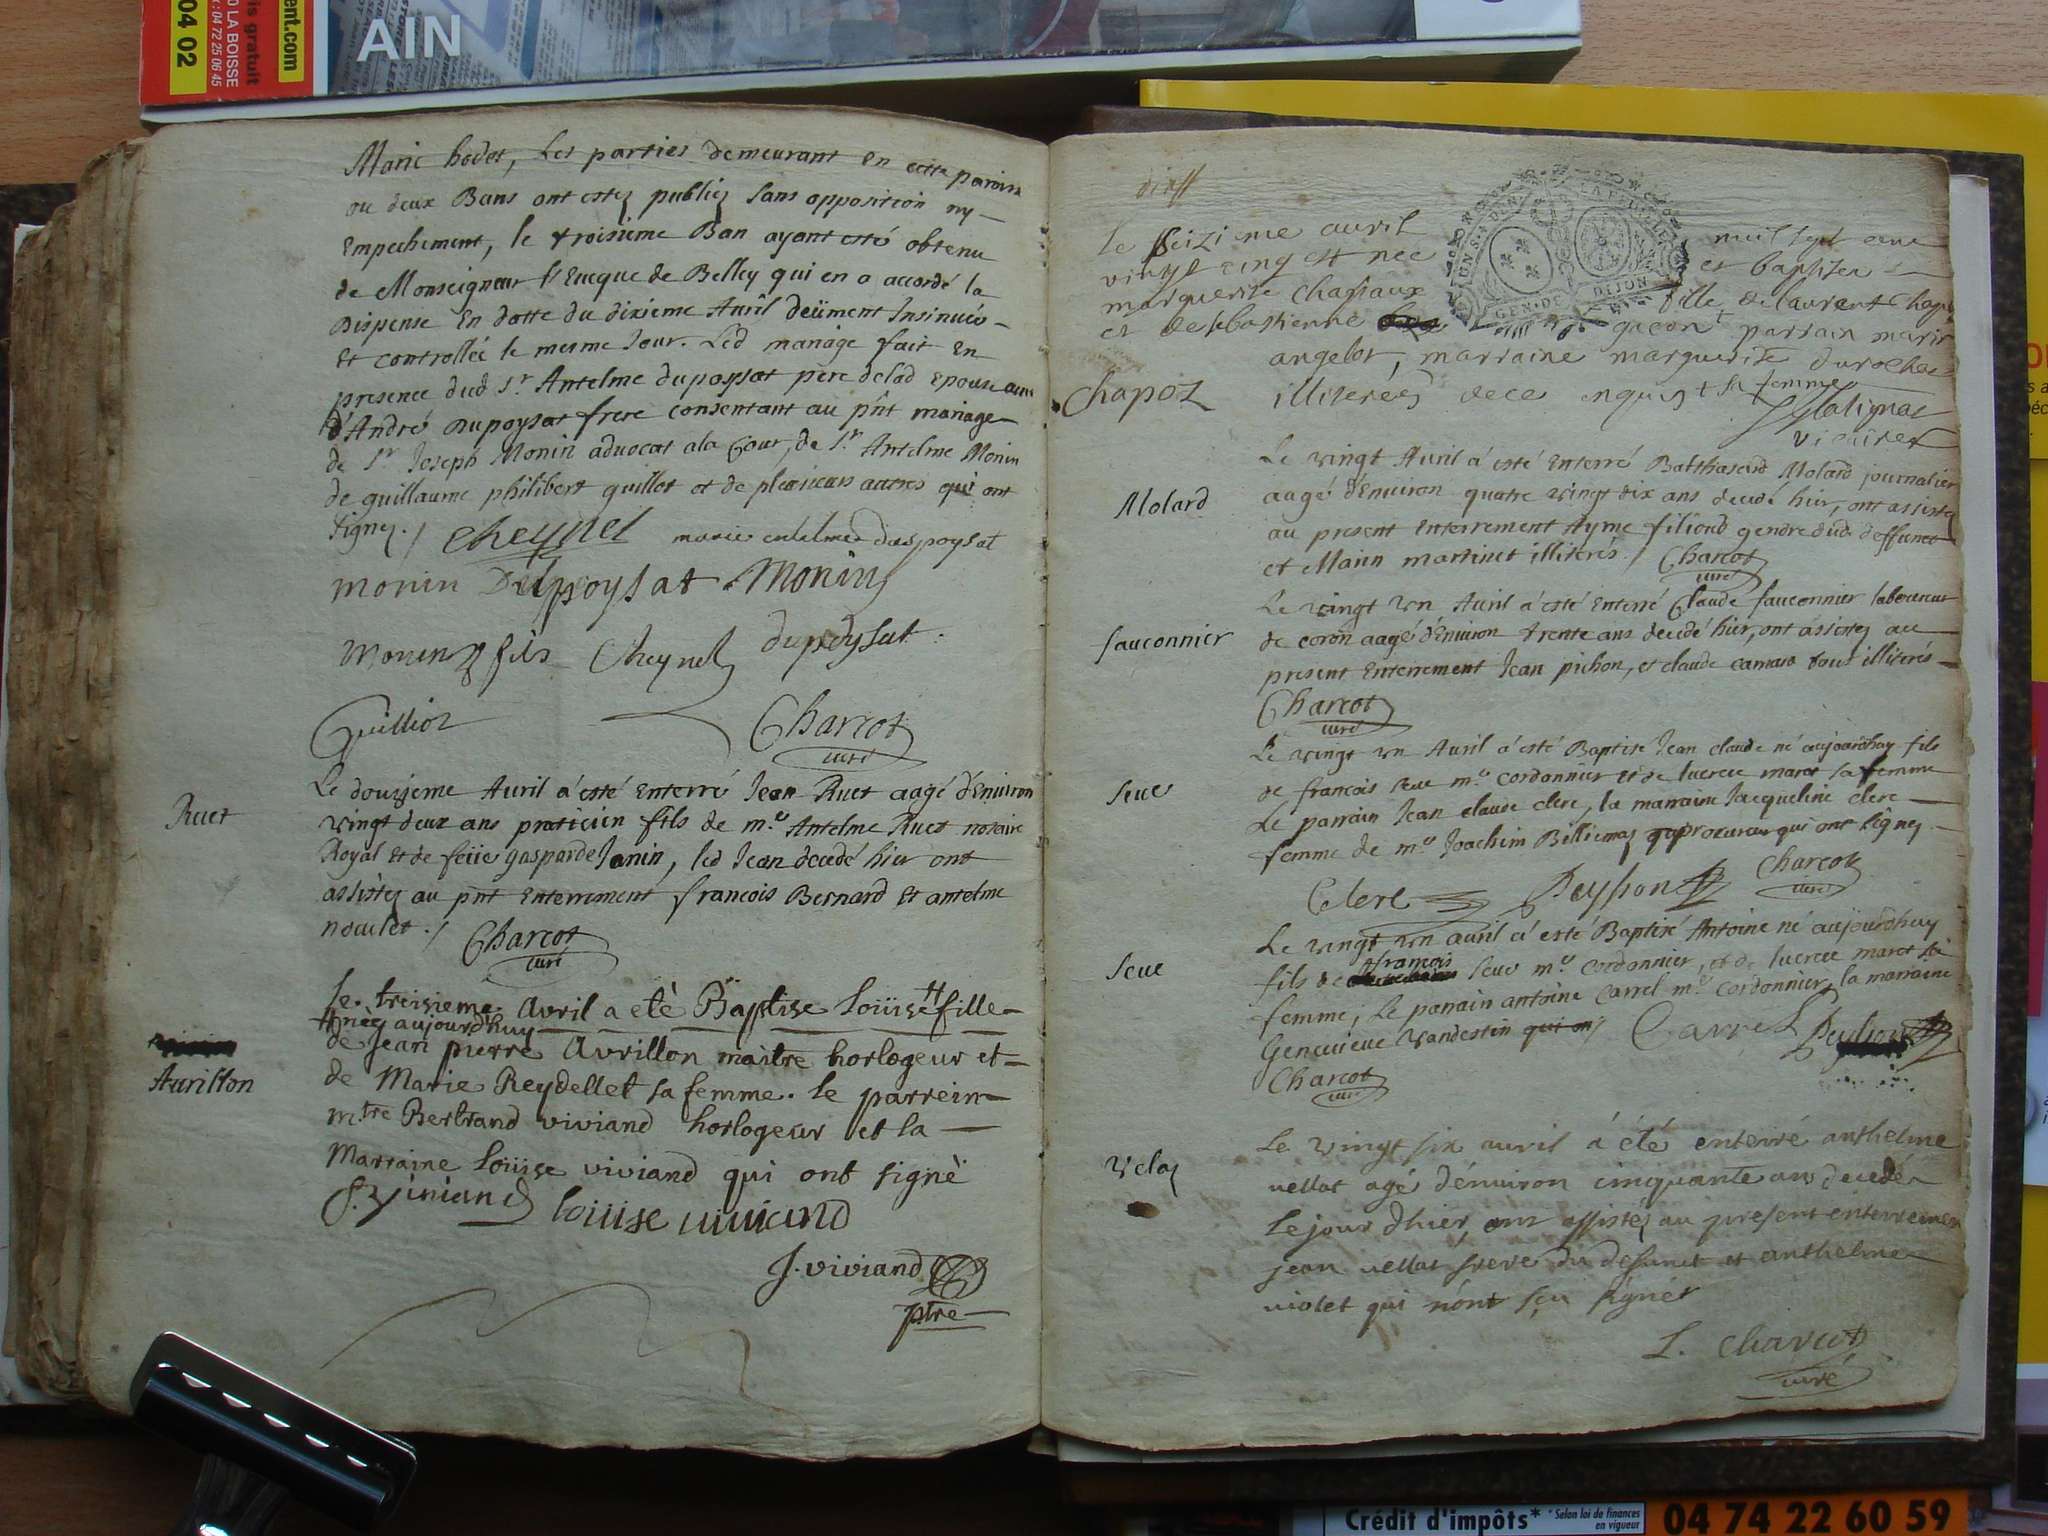 AIN
ent.com
04 02
is gratuit
0 LA BOISSE
: 04 72 25 06 45
Marie hodet, Les parties demeurant En cette paroisse
ou deux Bans ont estez publiez sans opposition ny
Empechement, le troisieme Ban ayant esté obtenu
de Monseigneur l'Eveque de Belley qui en a accordé la
Dispense En datte du dixiéme Avril deüment Insinuée
Et controllée le mesme Jour. Led mariage fait En
presence dud Sr Antelme dupoysat père de lad Epouse
d'André Dupoysat frere consentant au pñt mariage
de Sr Joseph Monin advocat a la Cour, de Sr. Antelme Monin
de guillaume philibert guillot et de plusieurs autres qui ont
signez. / Cheynel marie dupoysat
monin Dupoysat Monin
monin fils Cheynel dupoysat
Guilliot Charcot
curé
Ruet
Le douziéme Avril a esté Enterré Jean Ruet aagé d'Environ
vingt deux ans praticien fils de me Antelme Ruet notaire
Royal Et de feüe gasparde Janin, led Jean decedé hier ont
assistez au pñt Enterrement francois Bernard Et antelme
noulet. / Charcot
curé
Aurillon
Le treisieme Avril a eté Baptise Loüise fille
née aujourdhuy
de Jean pierre Avrillon maitre horlogeur et
de Marie Reydellet sa femme. le parrein
mtre Bertrand viviand horlogeur et la
Marraine Loüise viviand qui ont signè
B. Viviand Loüise viviand
J. viviand
ptre
le seizieme avril mil sept cent
vingt cinq est nee et baptizee
marguerite Chapaux fille de laurent
et de sebastienne gacon parrain marin
angelot, marraine marguerite durochat
Chapoz
illiterés de ce enquis + sa femme
vicaire
Molard
Le vingt Avril a esté Enterré Balthasard Molard journalier
aagé d'Environ quatre vingt dix ans decedé hier, ont assistez
au present Enterrement Ayme filioud gendre dud deffunct
et Marin martinet illiterés / Charcot
curé
fauconnier
Le vingt un Avril a esté Enterré Claude fauconnier laboureur
de coron aagé d'Environ trente ans decedé hier, ont assistez au
present Enterrement Jean pichon, et claude camard tous illiterés
Charcot
curé
Seve
Le vingt un Avril a esté Baptisé Jean claude né aujourdhuy fils
de francois Seve me cordonnier et de lucrece maret sa femme
Le parrain Jean claude clerc, la marraine Jacqueline clerc
femme de me Joachim Billiemaz procureur qui ont signez
Clerc Peysson Charcot
curé
Seve
Le vingt un avril a esté Baptisé Antoine né aujourdhuy
francois
fils de Seve me cordonnier, et de lucrece maret sa
femme, Le parrain antoine Carrel me cordonnier, la marraine
Genevieve Vandestin qui ont Carrel Peysson
Charcot
curé
Le vingt six avril a été enterré anthelme
vellat agé d'environ cinquante ans decedé
le jour d'hier, ont assistez au present enterrement
jean vellat frere du defunct et anthelme
violet qui n'ont sçu signer
L. Charcot
curé
Crédit d'impôts* * Selon loi de finances
en vigueur
04 74 22 60 59